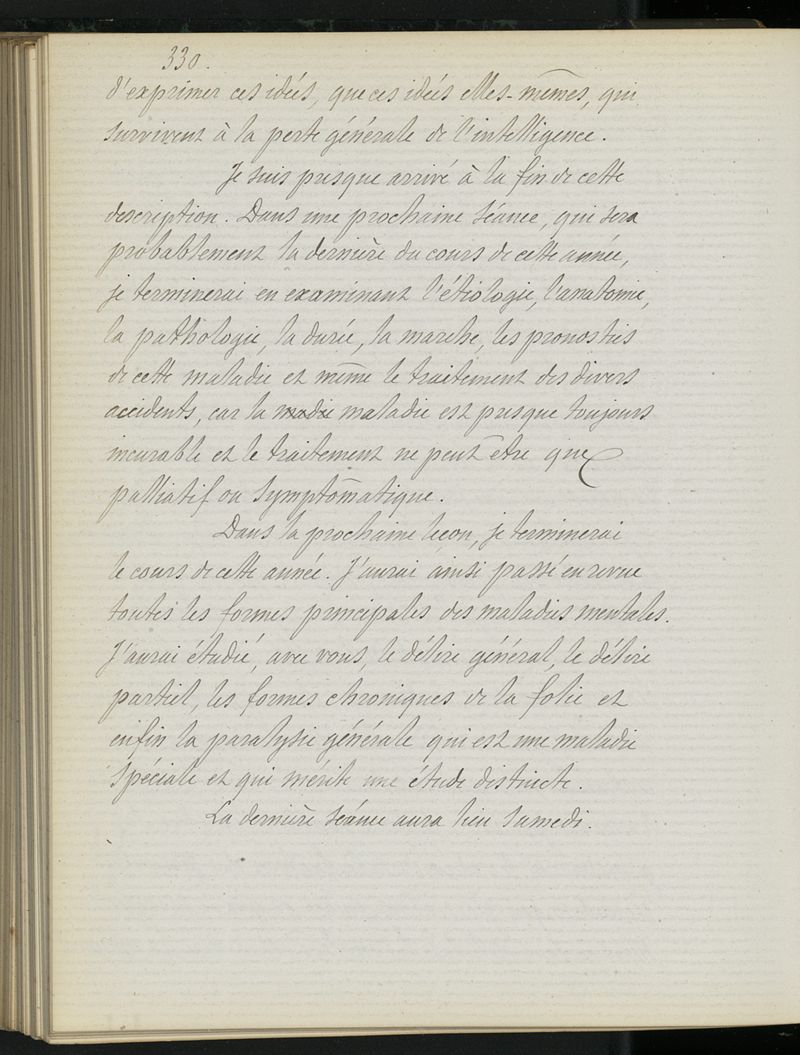 330.
d'exprimer ces idées, que ces idées elles-mêmes, qui
survivent à la perte générale de l'intelligence.
Je suis presque arrivé à la fin de cette
description. Dans une prochaine séance, qui sera
probablement la dernière du cours de cette année,
je terminerai en examinant l'étiologie, l'anatomie,
la pathologie, la durée, la marche, les pronostics
de cette maladie et même le traitement des divers
accidents, car la maladie est presque toujours
incurable et le traitement ne peut être que
palliatif ou symptômatique.
Dans la prochaine leçon, je terminerai
le cours de cette année. J'aurai ainsi passé en revue
toutes les formes principales des maladies mentales.
J'aurai étudié, avec vous, le délire général, le délire
partiel, les formes chroniques de la folie et
enfin la paralysie générale qui est une maladie
spéciale et qui mérite une étude distincte.
La dernière séance aura lieu samedi.